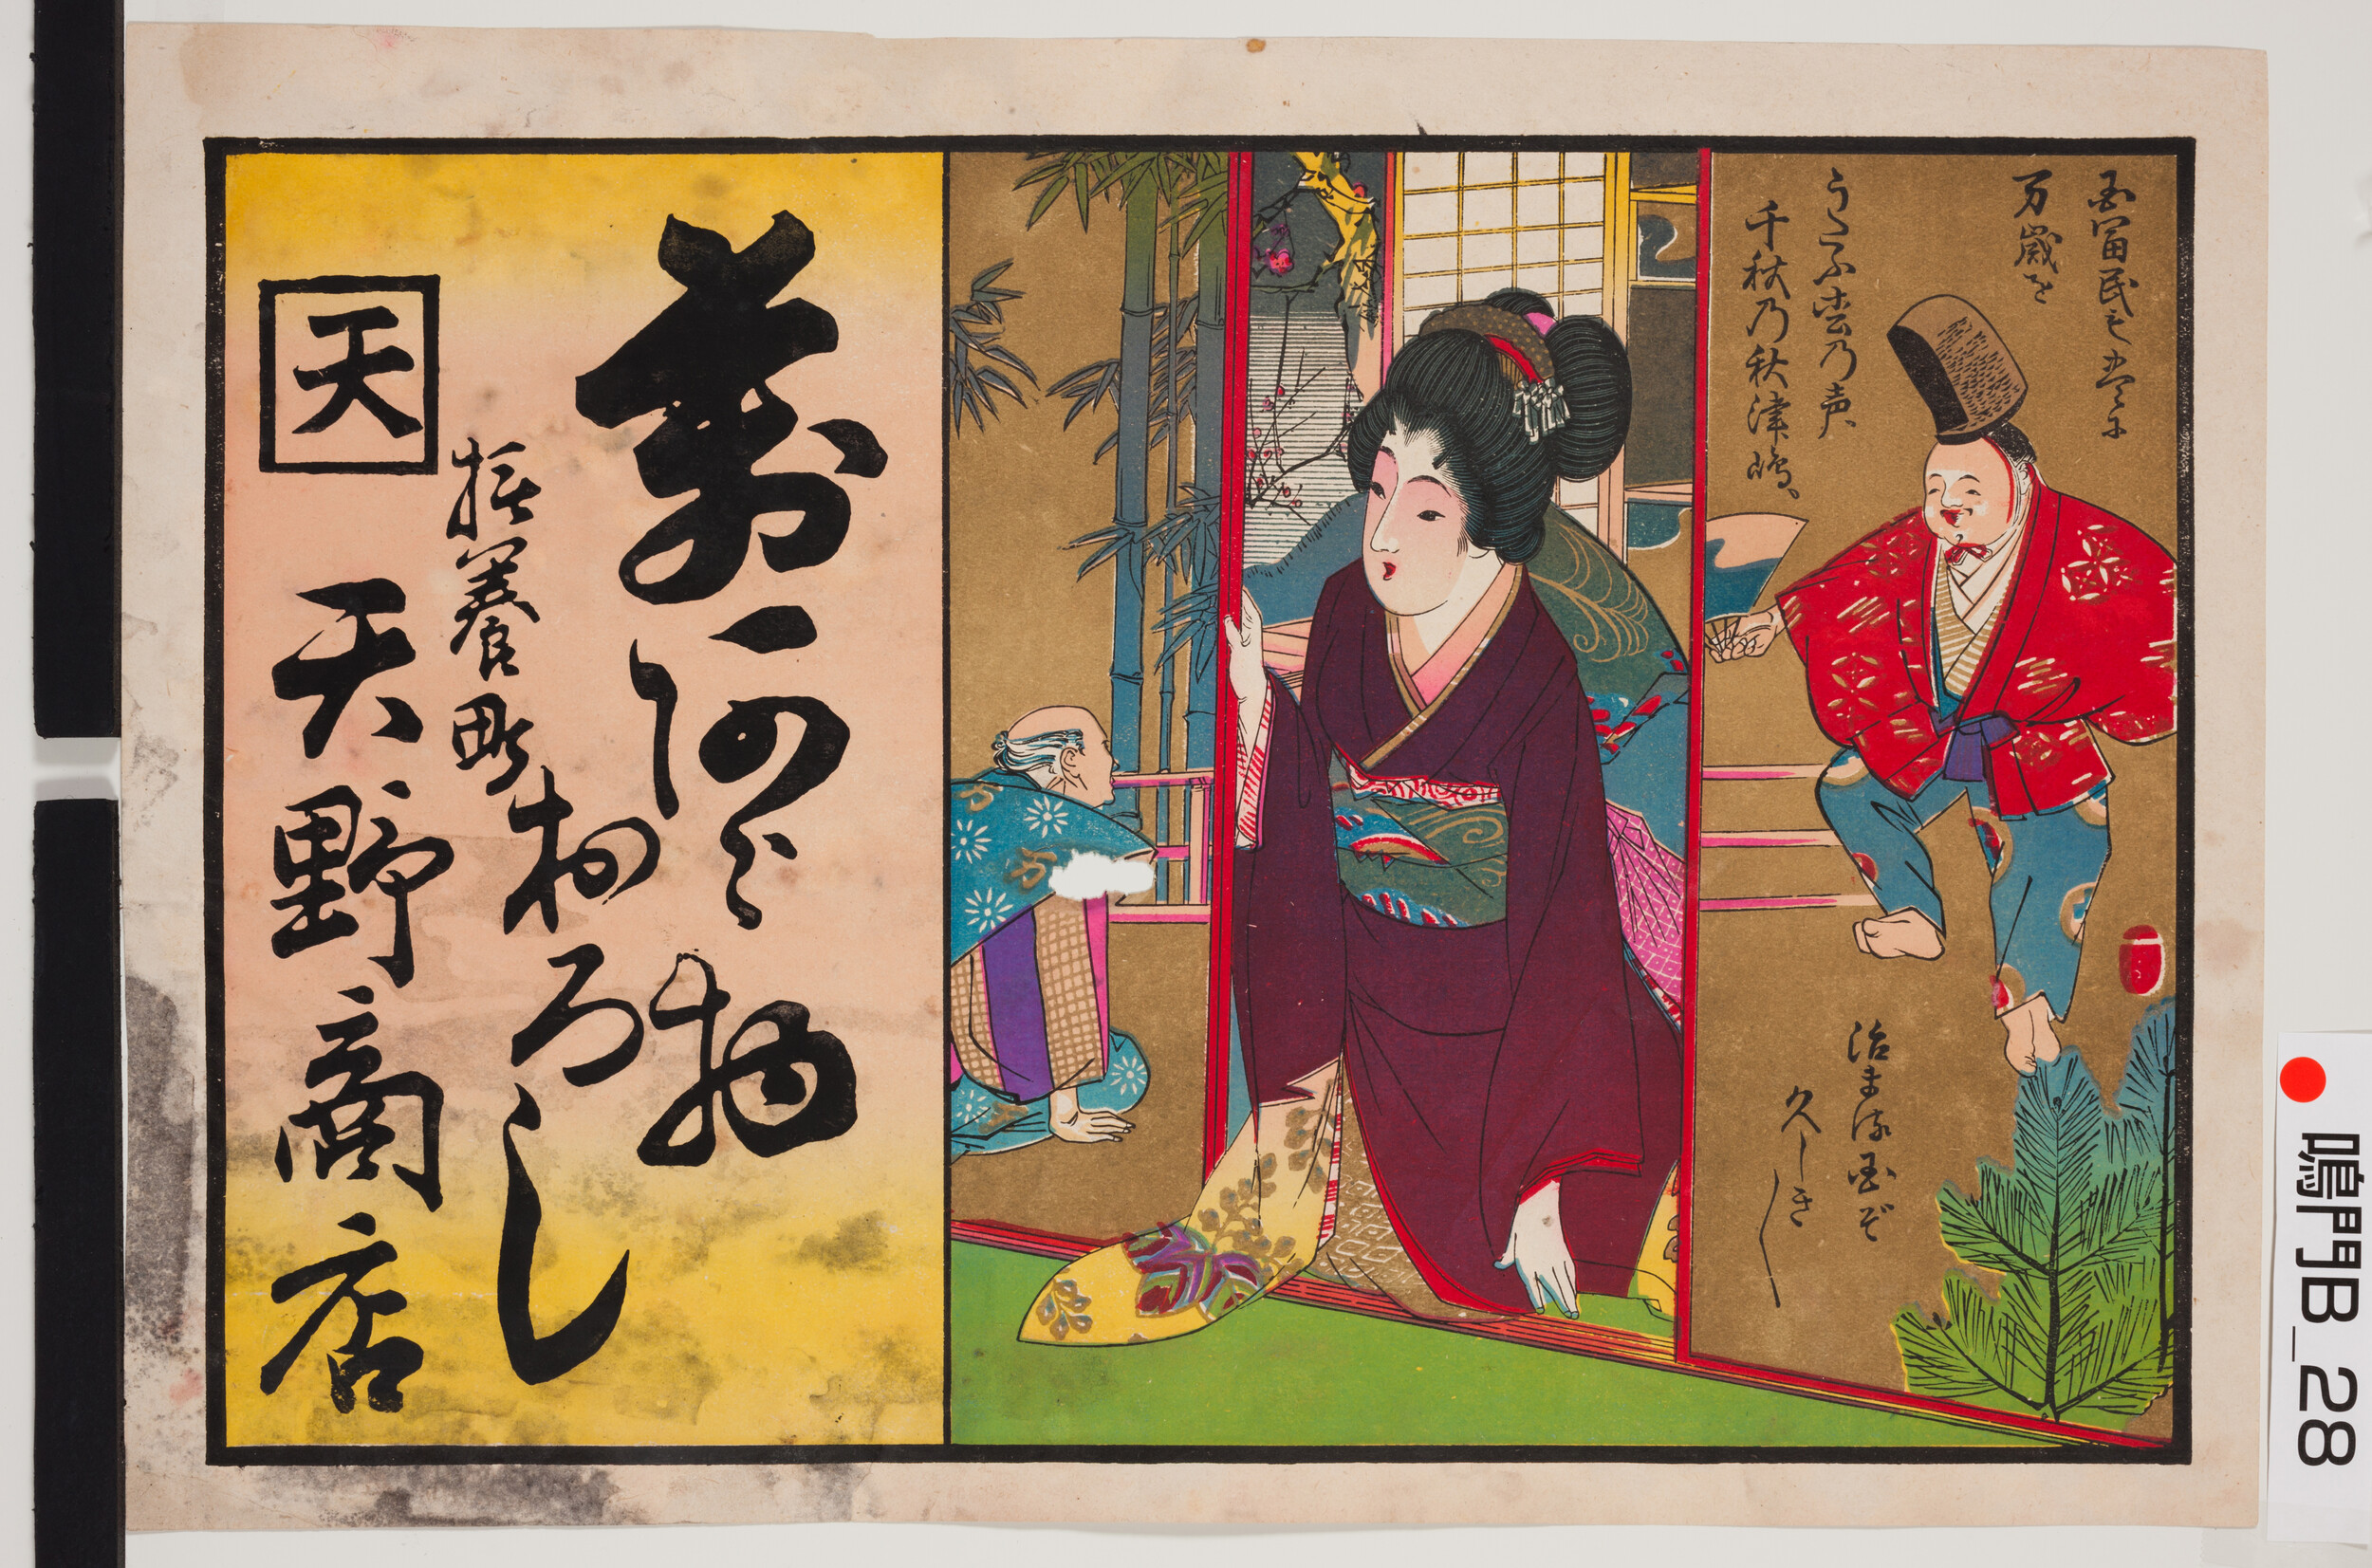 国富民も豊に
万歳を
うたふ枩乃声
千秋乃秋津嶋、
治まる国ぞ
久しき〱
萬阿ら物
おろし
撫養町
天
天野商店
鳴門B_28